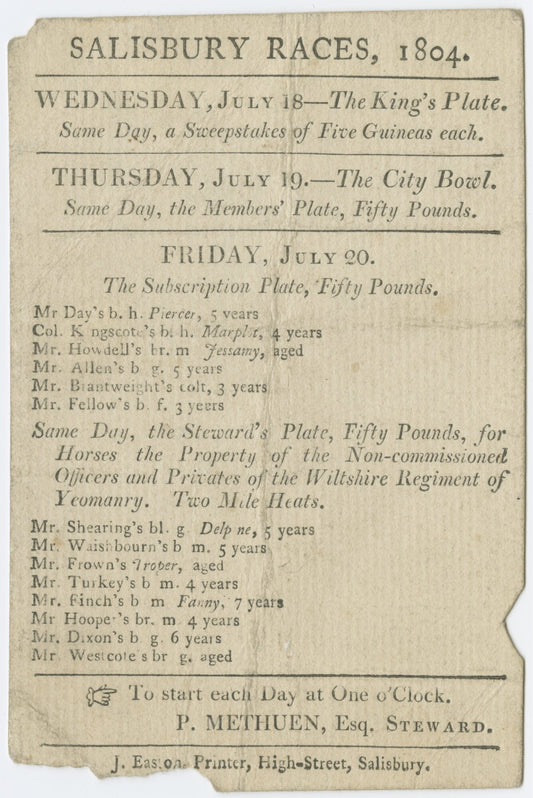 SALISBURY RACES, 1804.
WEDNESDAY, JULY 18—The King's Plate.
Same Day, a Sweepstakes of Five Guineas each.
THURSDAY, JULY 19.—The City Bowl.
Same Day, the Members' Plate, Fifty Pounds.
FRIDAY, JULY 20.
The Subscription Plate, Fifty Pounds.
Mr Day's b. h. Piercer, 5 years
Col. Kingscote's bl. h. Marplot, 4 years
Mr. Howdell's br. m Jessamy, aged
Mr. Allen's b g. 5 years
Mr. Brantweight's colt, 3 years
Mr. Fellow's b. f. 3 yeers
Same Day, the Steward's Plate, Fifty Pounds, for
Horses the Property of the Non-commissioned
Officers and Privates of the Wiltshire Regiment of
Yeomanry. Two Mile Heats.
Mr. Shearing's bl. g 5 years
Mr. Waishbourn's b m. 5 years
Mr. Frown's Troper, aged
Mr. Turkey's b m. 4 years
Mr. Finch's b m Fanny, 7 years
Mr Hooper's br. m 4 years
Mr. Dixon's b g. 6 years
Mr. Westcote's br g. aged
☞ To start each Day at One o'Clock.
P. METHUEN, Esq. STEWARD.
J. Easton, Printer, High-Street, Salisbury.